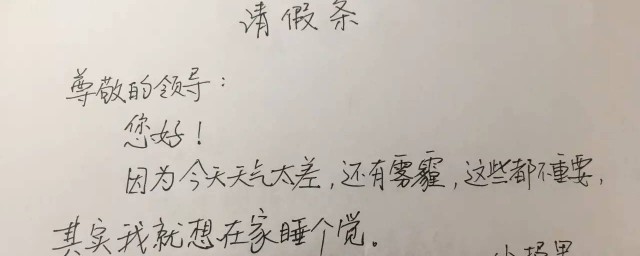 请假条
尊敬的领导：
您好！
因为今天天气太差，还有雾霾，这些都不重要，
其实我就想在家睡个觉。